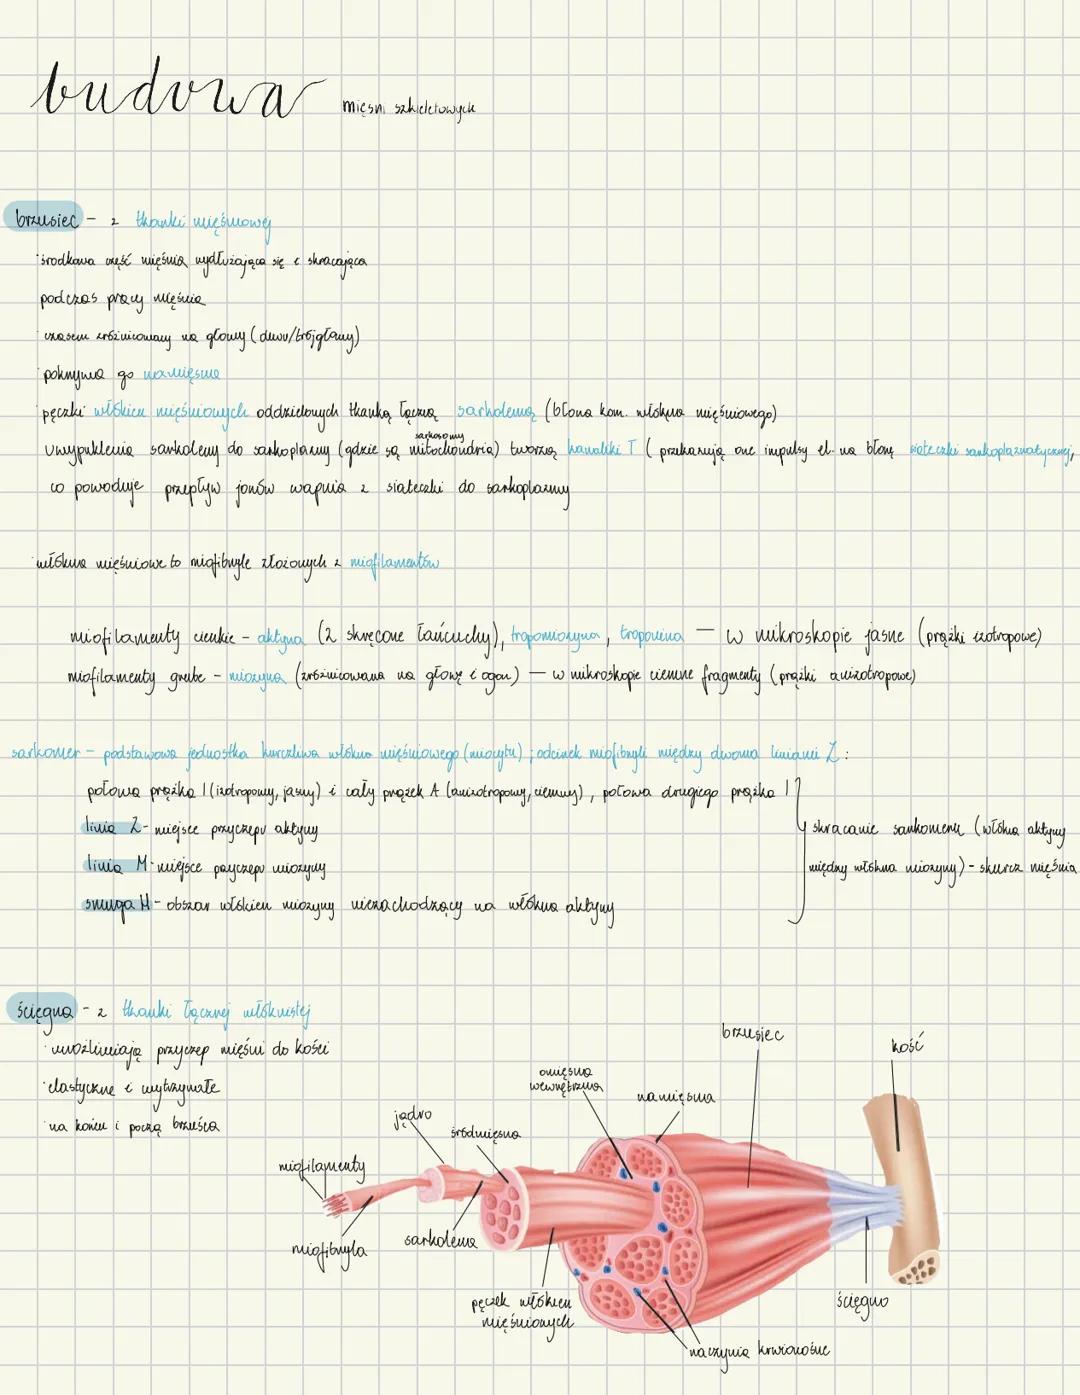 budowa mięśni szkieletowych
brzusiec - z tkanki mięśniowej
·środkowa część mięśnia wydłużająca się i skracająca
podczas pracy mięśnia
·czasem zróżnicowany na głowy (dwu/trójgłowy)
·pokrywa go namięsna
·pęczki włókien mięśniowych oddzielonych tkanką łączną sarkolemą (błona kom. włókna mięśniowego)
sarkosomy
uwypuklenia sarkolemy do sarkoplazmy (gdzie są mitochondria) tworzą kanaliki T ( przekazują one impulsy el. na błonę siateczki sarkoplazmatycznej,
co powoduje przepływ jonów wapnia z siateczki do sarkoplazmy
·włókna mięśniowe to miofibryle złożonych z miofilamentów
miofilamenty cienkie - aktyna (2 skręcone łańcuchy), tropomiozyna, troponina — w mikroskopie jasne (prążki izotropowe)
miofilamenty grube - miozyna (zróżnicowana na głowę i ogon) — w mikroskopie ciemne fragmenty (prążki anizotropowe)
sarkomer - podstawowa jednostka kurczliwa włókna mięśniowego (miocytu) ; odcinek miofibryli między dwoma liniami Z :
połowa prążka I (izotropowy, jasny) i cały prążek A (anizotropowy, ciemny) , połowa drugiego prążka I
linia Z - miejsce przyczepu aktyny
skracanie sarkomeru (włókna aktyny
linia M - miejsce przyczepu miozyny
między włókna miozyny) - skurcz mięśnia
smuga H - obszar włókien miozyny niezachodzący na włókna aktyny
ścięgna - z tkanki łącznej włóknistej
·umożliwiają przyczep mięśni do kości
·elastyczne i wytrzymałe
·na końcu i począ brzuśca
brzusiec
kość
omięsna
wewnętrzna
namięsna
jądro
śródmięsna
miofilamenty
miofibryla
sarkolema
pęczek włókien
mięśniowych
ścięgno
naczynia krwionośne